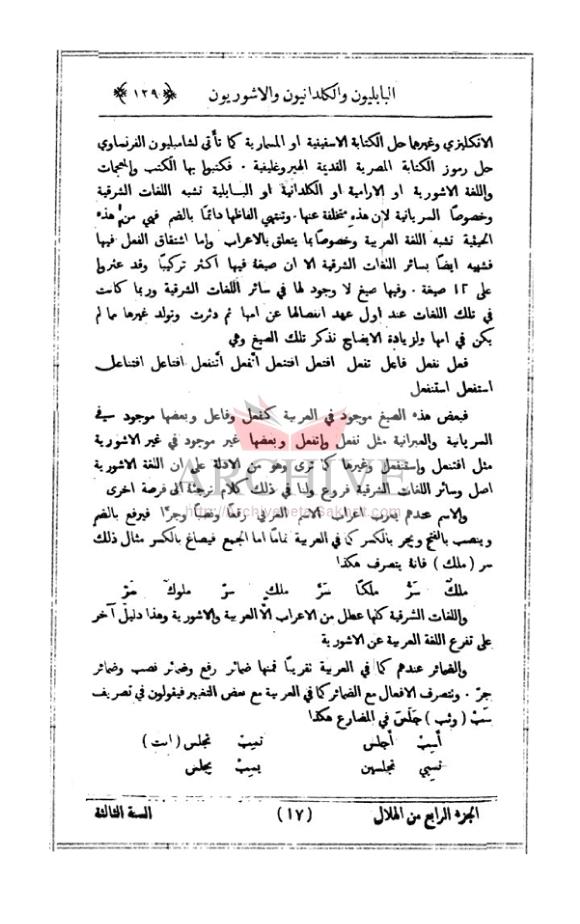 البابليون والكلدانيون والاشوريون ﴿ ١٢٩ ﴾
الانكليزي وغيرها حل الكتابة الاسفينية او المسمارية كما تأتى لشامبليون الفرنساوي
حل رموز الكتابة المصرية القديمة الهيروغليفية . فكتبوا بها الكتب والمعجمات
واللغة الاشورية او الارامية او الكلدانية او البابلية تشبه اللغات الشرقية
وخصوصاً السريانية لان هذه متخلفة عنها . وتنتهي الفاظها دائماً بالضم فهي من هذه
الحيثية تشبه اللغة العربية وخصوصاً بما يتعلق بالاعراب وإما اشتقاق الفعل فيها
فشبيه ايضاً بسائر اللغات الشرقية الا ان صيغة فيها اكثر تركيباً وقد عثروا
على ١٢ صيغة . وفيها صيغ لا وجود لها في سائر اللغات الشرقية وربما كانت
في تلك اللغات عند اول عهد انفصالها عن امها ثم دثرت وتولد غيرها مما لم
يكن في امها ولزيادة الايضاح نذكر تلك الصيغ وهي
فعل نفعل فاعل تفعل افتعل افتنعل انفعل أتنفعل افتاعل افتناعل
استفعل استنفعل
فبعض هذه الصيغ موجود في العربية كفعل وفاعل وبعضها موجود في
السريانية والعبرانية مثل نفعل وإتفعل وبعضها غير موجود في غير الاشورية
مثل افتنعل وإستنفعل وغيرها كما ترى وهو من الادلة على ان اللغة الاشورية
اصل وسائر اللغات الشرقية فروع ولنا في ذلك كلام نرجئه الى فرصة اخرى
والاسم عندهم يعرب اعراب الاسم العربي رفعاً ونصباً وجراً فيرفع بالضم
وينصب بالفتح ويجر بالكسر كما في العربية تماماً اما الجمع فيصاغ بالكسر مثال ذلك
سر ( ملك ) فانه يتصرف هكذا
ملكٌ سَرُّ ملكًا سَرَّ ملكٍ سرِّ ملوك
واللغات الشرقية كلها عطل من الاعراب الا العربية والاشورية وهذا دليل آخر
على تفرع اللغة العربية عن الاشورية
والضمائر عندهم كما في العربية تقريباً فمنها ضمائر رفع وضمائر نصب وضمائر
جرّ . وتتصرف الافعال مع الضمائر كما في العربية مع بعض التغيير فيقولون في تصريف
( وثب ) جَلَسَ في المضارع هكذا
أسِبْ أجلس تسِبْ تجلس ( انت )
تسبي تجلسين يسِبْ يجلس
الجزء الرابع من الهلال ( ١٧ ) السنة الثالثة
ARCHIVE